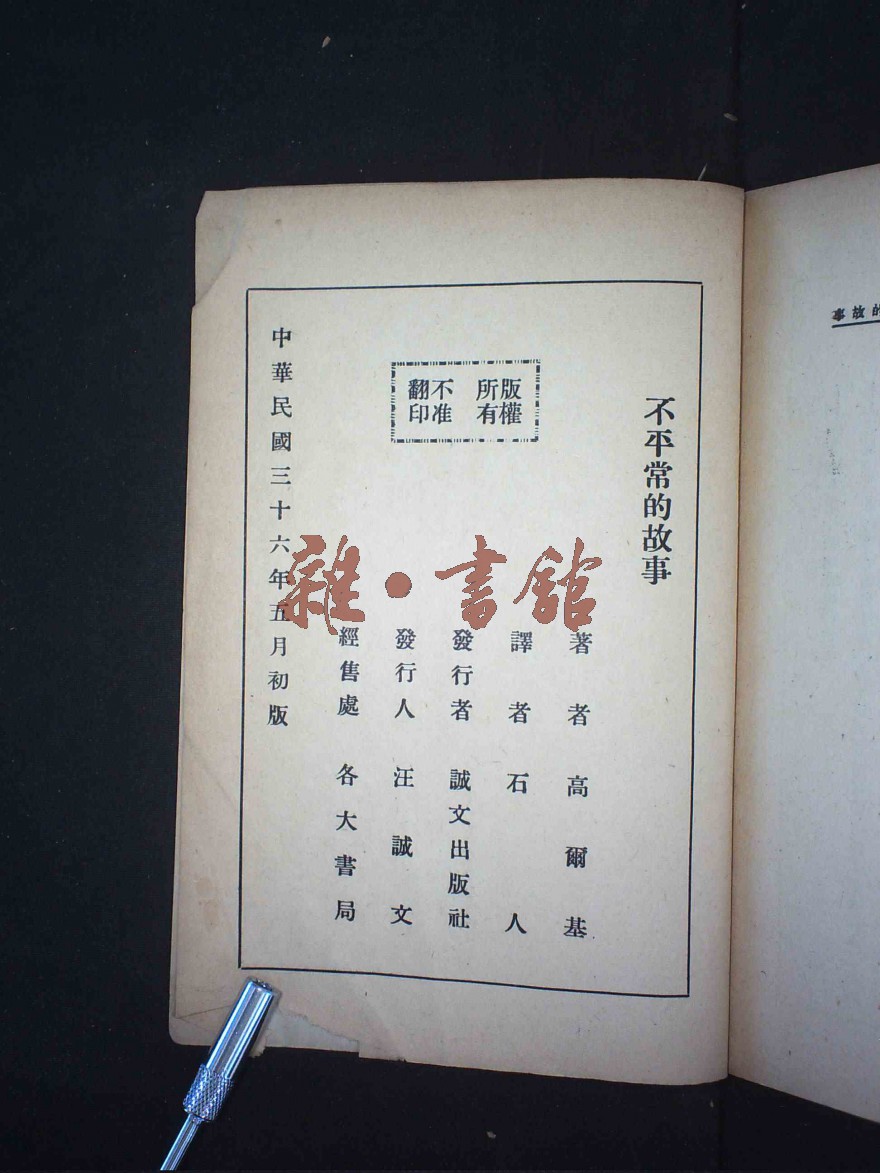 不平常的故事
版權所有
不准翻印
著者高爾基
譯者石人
發行者 誠文出版社
發行人 汪誠文
經售處 各大書局
中華民國三十六年五月初版
雜·書館
的故事